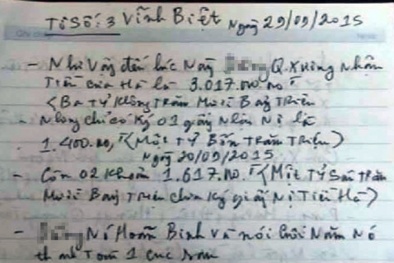 Tờ Số: 3 Vĩnh Biệt Ngày 29/09/2015
- Như Vậy đến lúc Này Q. Xuống Nhận
Tiền của Hà là 3.017.000.000đ
< Ba Tỷ Không Trăm Mười Bảy Triệu
Nhưng chỉ có Ký 01 giấy Nhận Nợ là
1.400.000, < Một Tỷ Bốn Trăm Triệu>
Ngày 20/09/2015
- Còn 02 Khoản 1.617.000.đ < Một Tỷ Sáu Trăm
Mười Bảy Triệu chưa Ký giấy Nợ Tiền Hà>
- Nó Hoãn Binh Và nói Cuối Năm Nó
1 cục